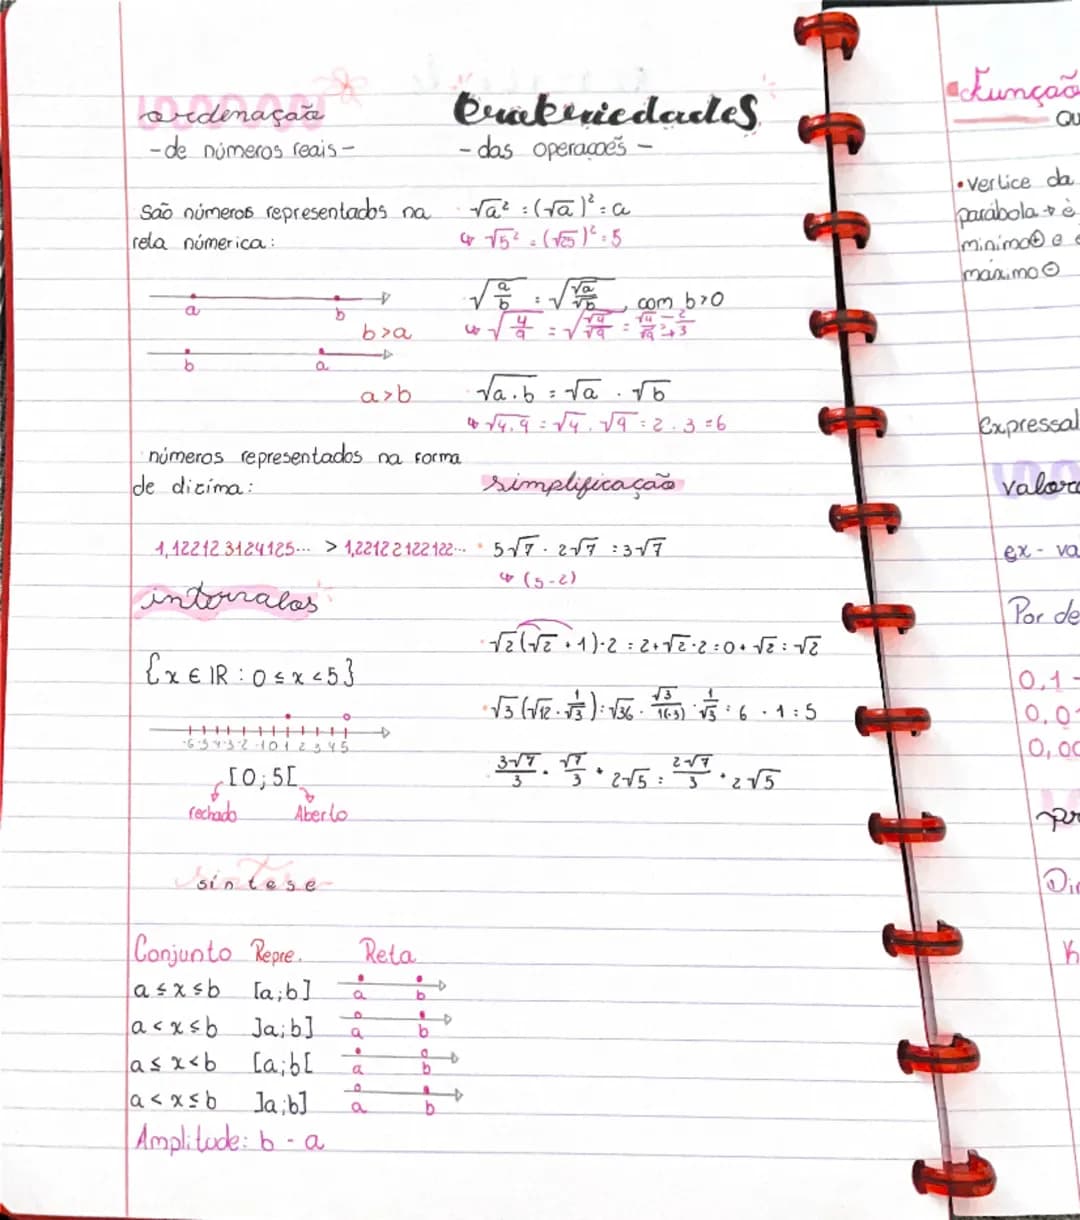 ordenação
- de números reais -
São números representados na
reta númerica:
a b
b>a
b a
a>b
números representados na forma
de dizima:
1,122123124125... > 1,22122122122...
intervalos
{x ∈ IR : 0 ≤ x < 5}
-6-5-4-3-2-1 0 1 2 3 4 5
[0;5[
fechado Aberto
síntese
Conjunto Repre. Reta
a ≤ x ≤ b [a;b] a b
a < x ≤ b ]a;b] a b
a ≤ x < b [a;b[ a b
a < x ≤ b ]a;b] a b
Amplitude: b - a
- das operaçoẽs -
√a² = (√a)² = a
↳ √5² = (√25)² = 5
√a/b = √√a/√b, com b>0
↳ √4/9 = √√4/√9 = √4/√9 → 2/3
√a.b = √a . √b
↳ √4.9 = √4 . √9 = 2 . 3 = 6
simplificação
5√7 - 2√7 = 3√7
↳ (5-2)
√2(√2 + 1)-2 = 2+√2-2 = 0+√2 = √2
√3(√12 - 1/√3) = √36 - √3/1(√3) · 1/√3 = 6 - 1 = 5
3√7/3 - √7/3 + 2√5 = 2√7/3 + 2√5
Função
• vertice da
parábola → è
minimo⊕ e
máximo⊖
valore
ex - va
Por de
0,1 -
0,0
0,00